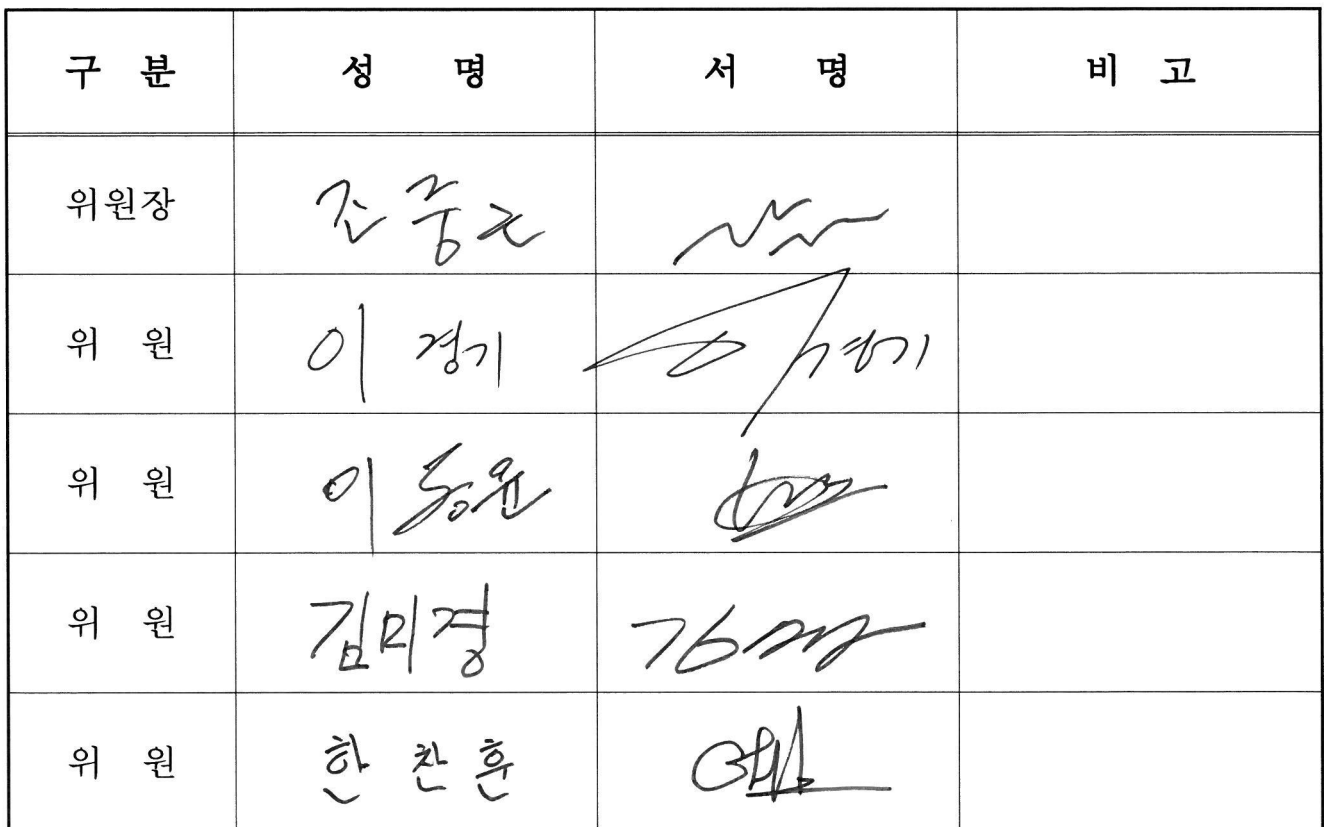 구 분 성 명 서 명 비 고
위원장 조중근
위 원 이 경기
위 원 이동윤
위 원 김미경 김미경
위 원 한찬훈